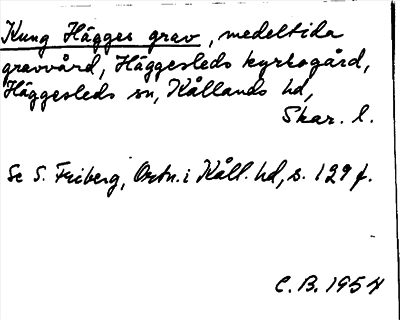 Kung Hägges grav, medeltida
gravvård, Häggesleds kyrkogård,
Häggesleds sn, Kållands hd,
Skar. l.
Se S. Friberg, Ortn. i Kåll. hd, s. 129 f.
C.B. 1954